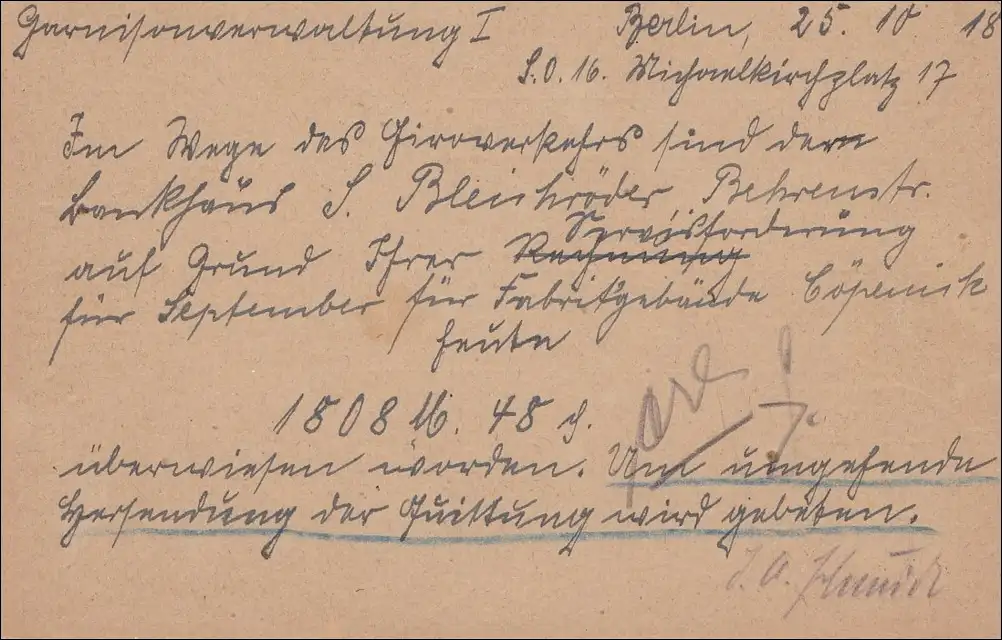 Garnisonverwaltung I Berlin, 25. 10 18
S.O. 16. Michaelkirchplatz 17
Im Wege des Giroverkehrs sind dem
Bankhaus S. Bleichröder, Behrenstr.
Servisforderung
auf Grund Ihrer Rechnung
für September für Fabrikgebäude Cöpenick
heute
1808 M. 48 d.
überwiesen worden. Um umgehende
Hersendung der Quittung wird gebeten.
I. A.